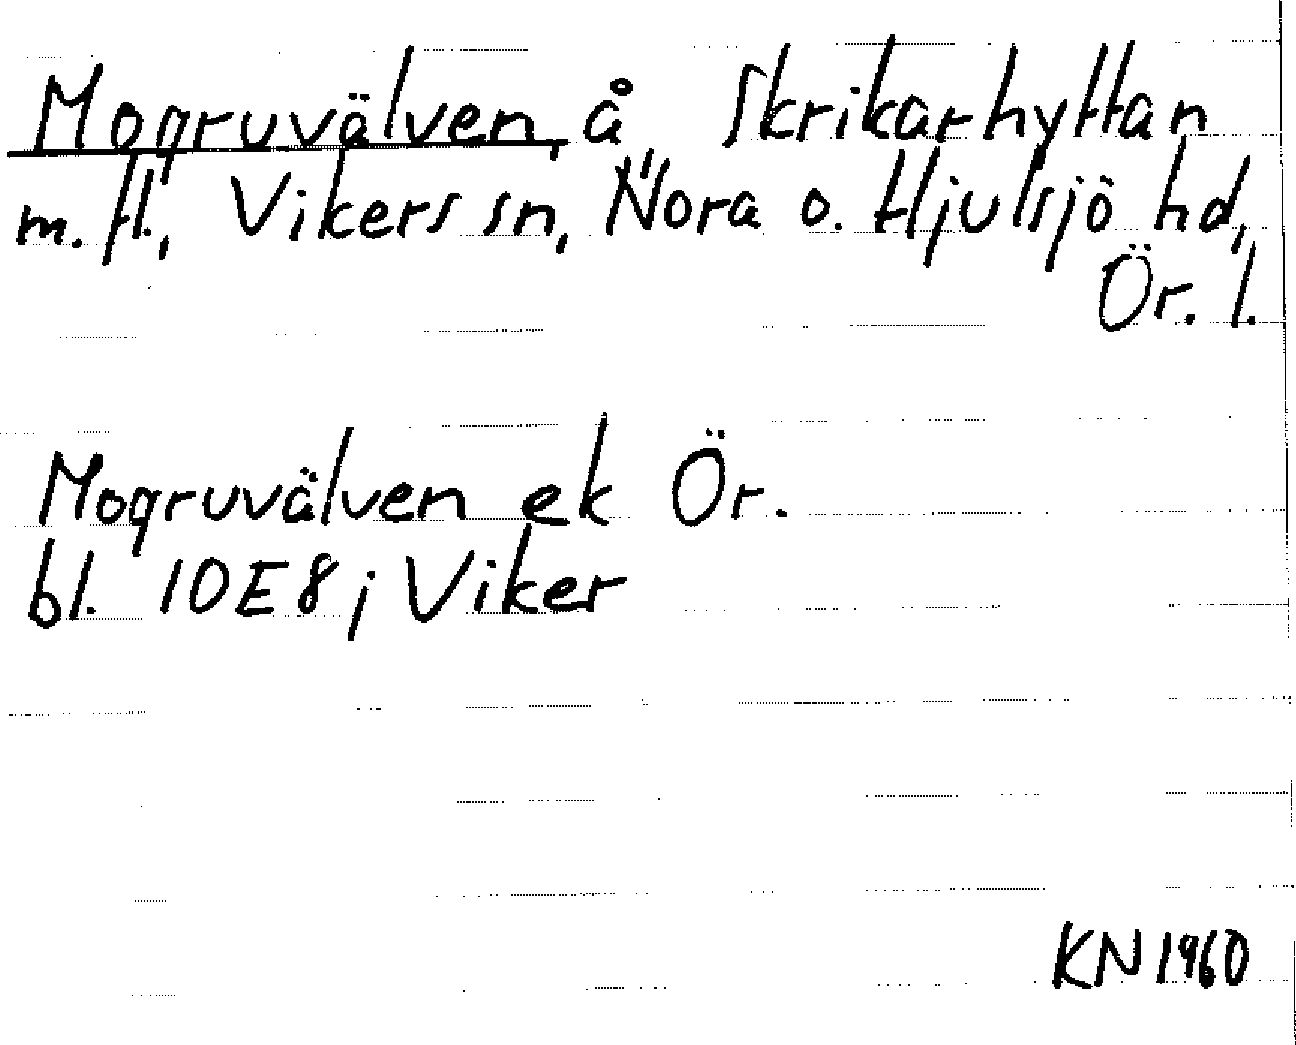 Mogruvälven, å, Skrikarhyttan
m. fl., Vikers sn, Nora o. Hjulsjö hd,
Ör. l.
Mogruvälven ek Ör.
bl. 10E8j Viker
KN 1960